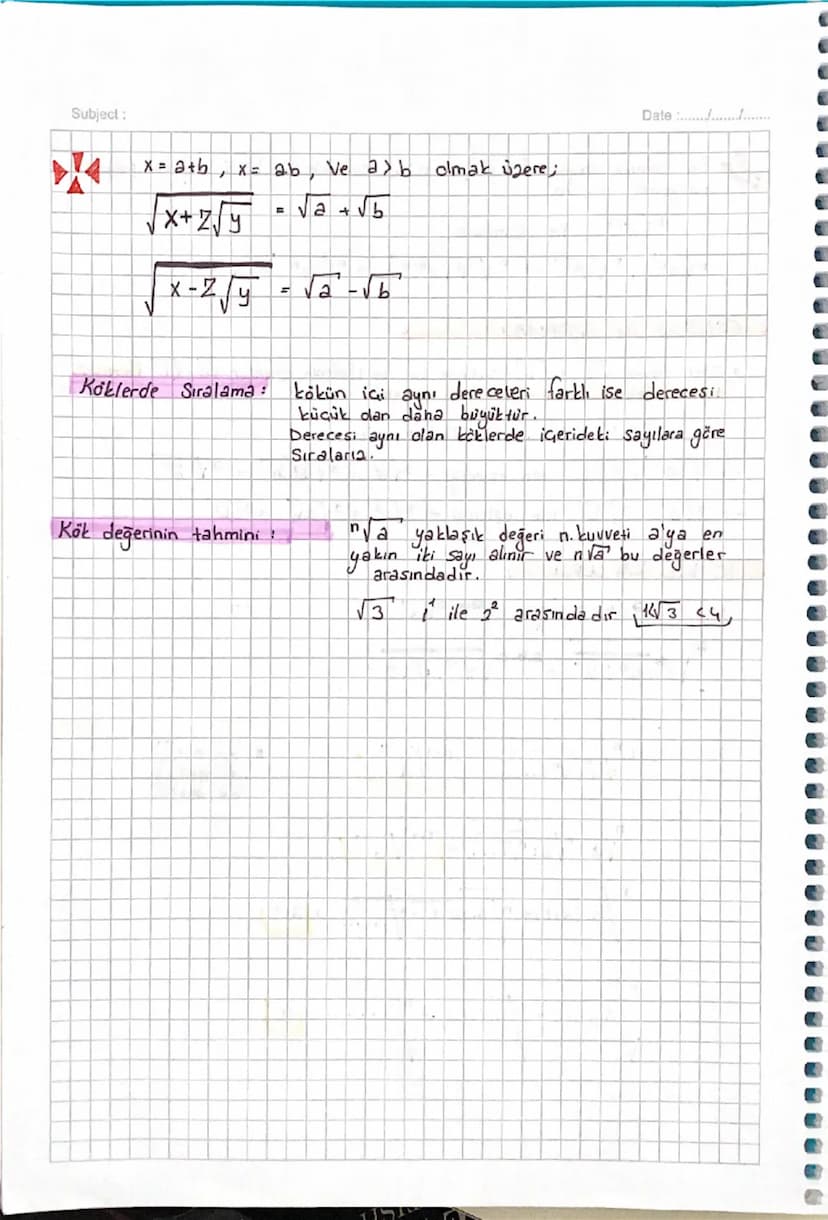 Subject :
Date :....../......./.......
x = a+b , x = ab , ve a > b olmak üzere;
√(x+2√y) = √a + √b
√(x-2√y) = √a - √b
Köklerde Sıralama : kökün içi aynı dereceleri farklı ise derecesi
küçük olan daha büyüktür.
Derecesi aynı olan köklerde içerideki sayılara göre
Sıralarız.
Kök değerinin tahmini : ⁿ√a yaklaşık değeri n. kuvveti a'ya en
yakın iki sayı alınır ve n√a bu değerler
arasındadır.
√3 1¹ ile 2² arasındadır 1<√3 <4